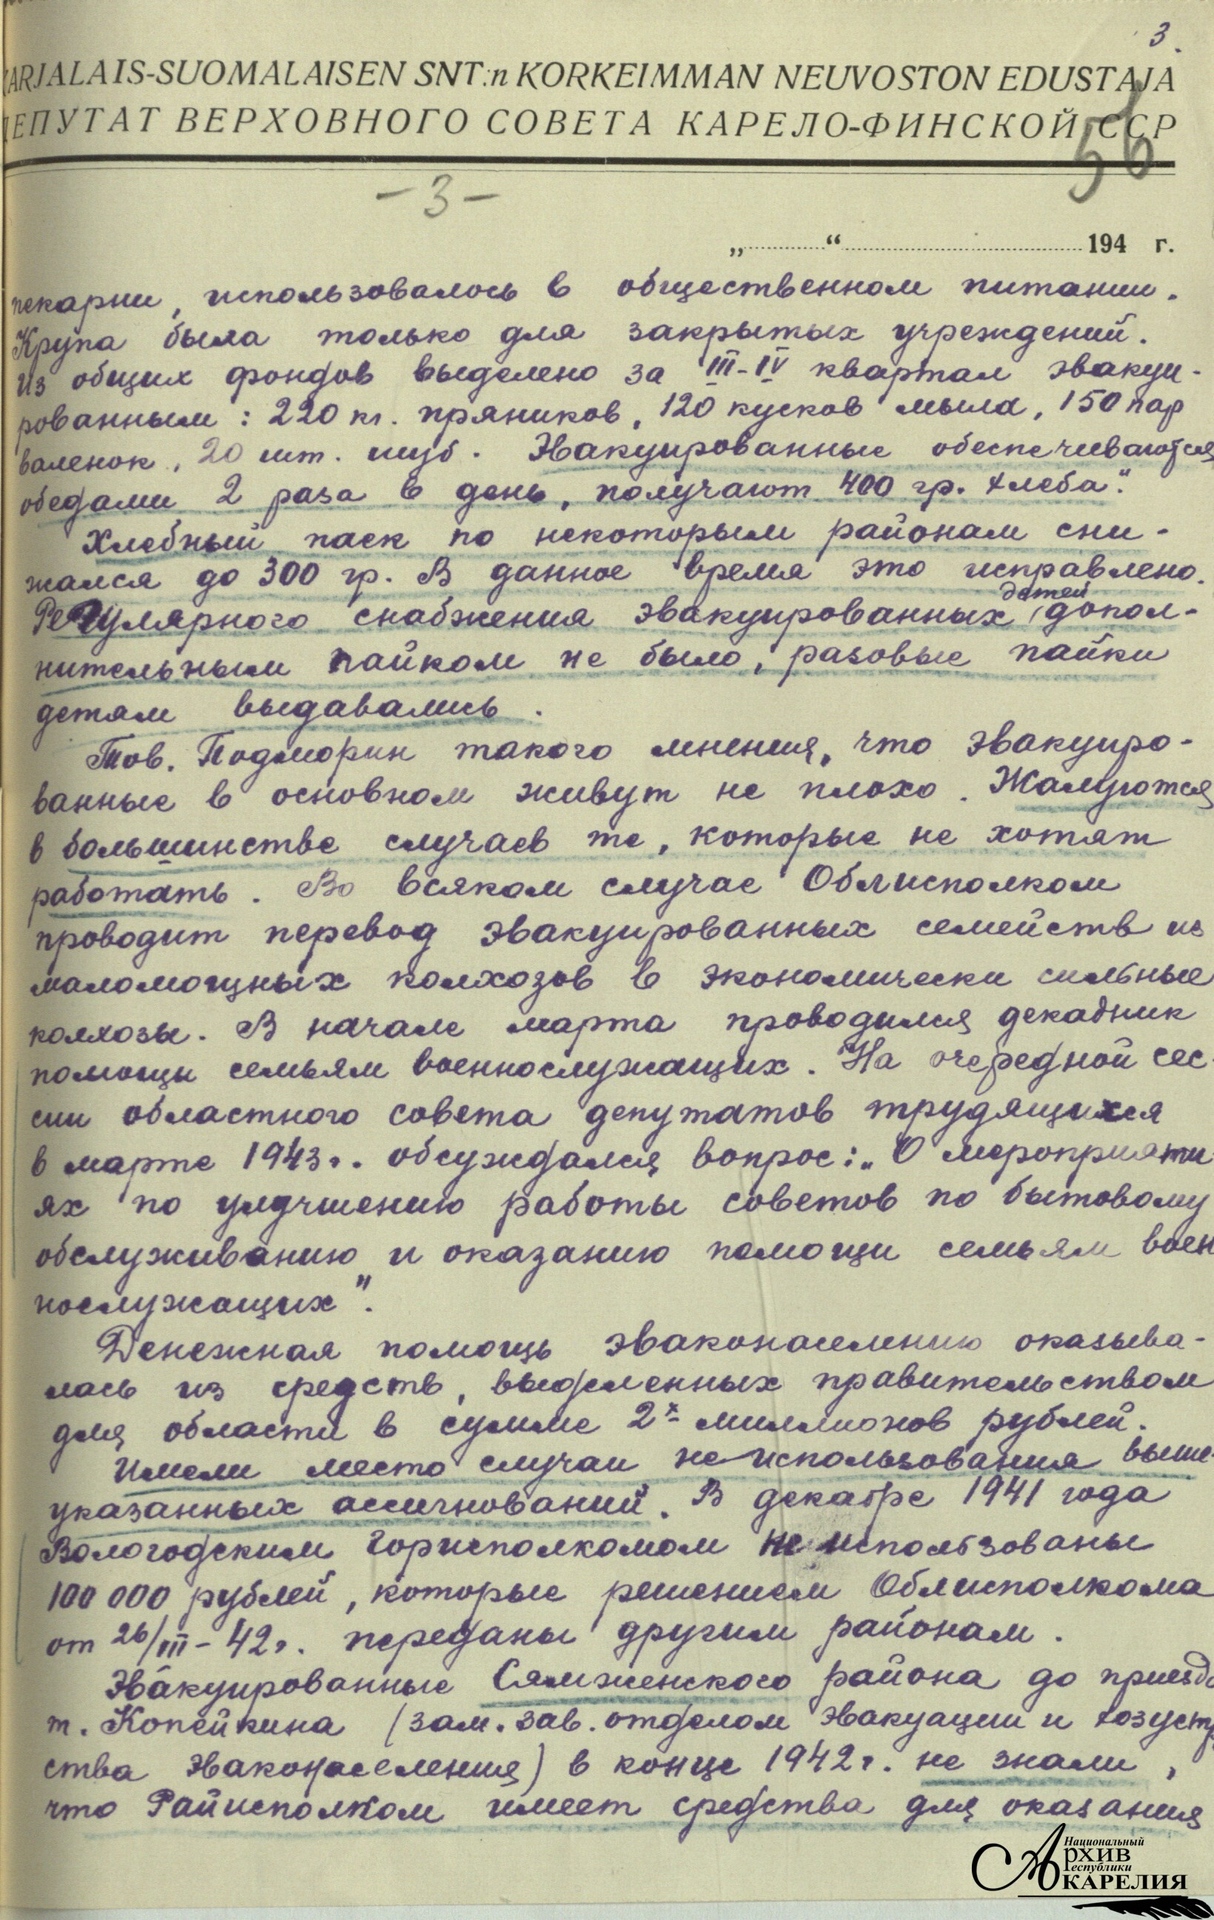 3.
KARJALAIS-SUOMALAISEN SNT:n KORKEIMMAN NEUVOSTON EDUSTAJA
ДЕПУТАТ ВЕРХОВНОГО СОВЕТА КАРЕЛО-ФИНСКОЙ ССР
56
- 3 -
„ “ 194 г.
пекарни, использовалось в общественном питании.
Крупа была только для закрытых учреждений.
Из общих фондов выделено за III-IV квартал эвакуи-
рованным: 220 кг. пряников, 120 кусков мыла, 150 пар
валенок, 20 шт. шуб. Эвакуированные обеспечиваются
обедами 2 раза в день, получают 400 гр. хлеба".
Хлебный паек по некоторым районам сни-
жался до 300 гр. В данное время это исправлено.
Регулярного снабжения эвакуированных детей допол-
нительным пайком не было, разовые пайки
детям выдавались.
Тов. Подморин такого мнения, что эвакуиро-
ванные в основном живут не плохо. Жалуются
в большинстве случаев те, которые не хотят
работать. Во всяком случае Облисполком
проводит перевод эвакуированных семейств из
маломощных колхозов в экономически сильные
колхозы. В начале марта проводился декадник
помощи семьям военнослужащих. На очередной сес-
сии областного совета депутатов трудящихся
в марте 1943 г. обсуждался вопрос: „О мероприяти-
ях по улучшению работы советов по бытовому
обслуживанию и оказанию помощи семьям воен-
нослужащих".
Денежная помощь эваконаселению оказыва-
лась из средств, выделенных правительством
для области в сумме 2х миллионов рублей.
Имели место случаи не использования выше-
указанных ассигнований. В декабре 1941 года
Вологодским горисполкомом не использованы
100 000 рублей, которые решением Облисполкома
от 26/III-42 г. переданы другим районам.
Эвакуированные Сямженского района до приезда
т. Копейкина (зам. зав. отделом эвакуации и хозустр
ства эваконаселения) в конце 1942 г. не знали,
что Райисполком имеет средства для оказания
Национальный
Архив
Республики
Карелия